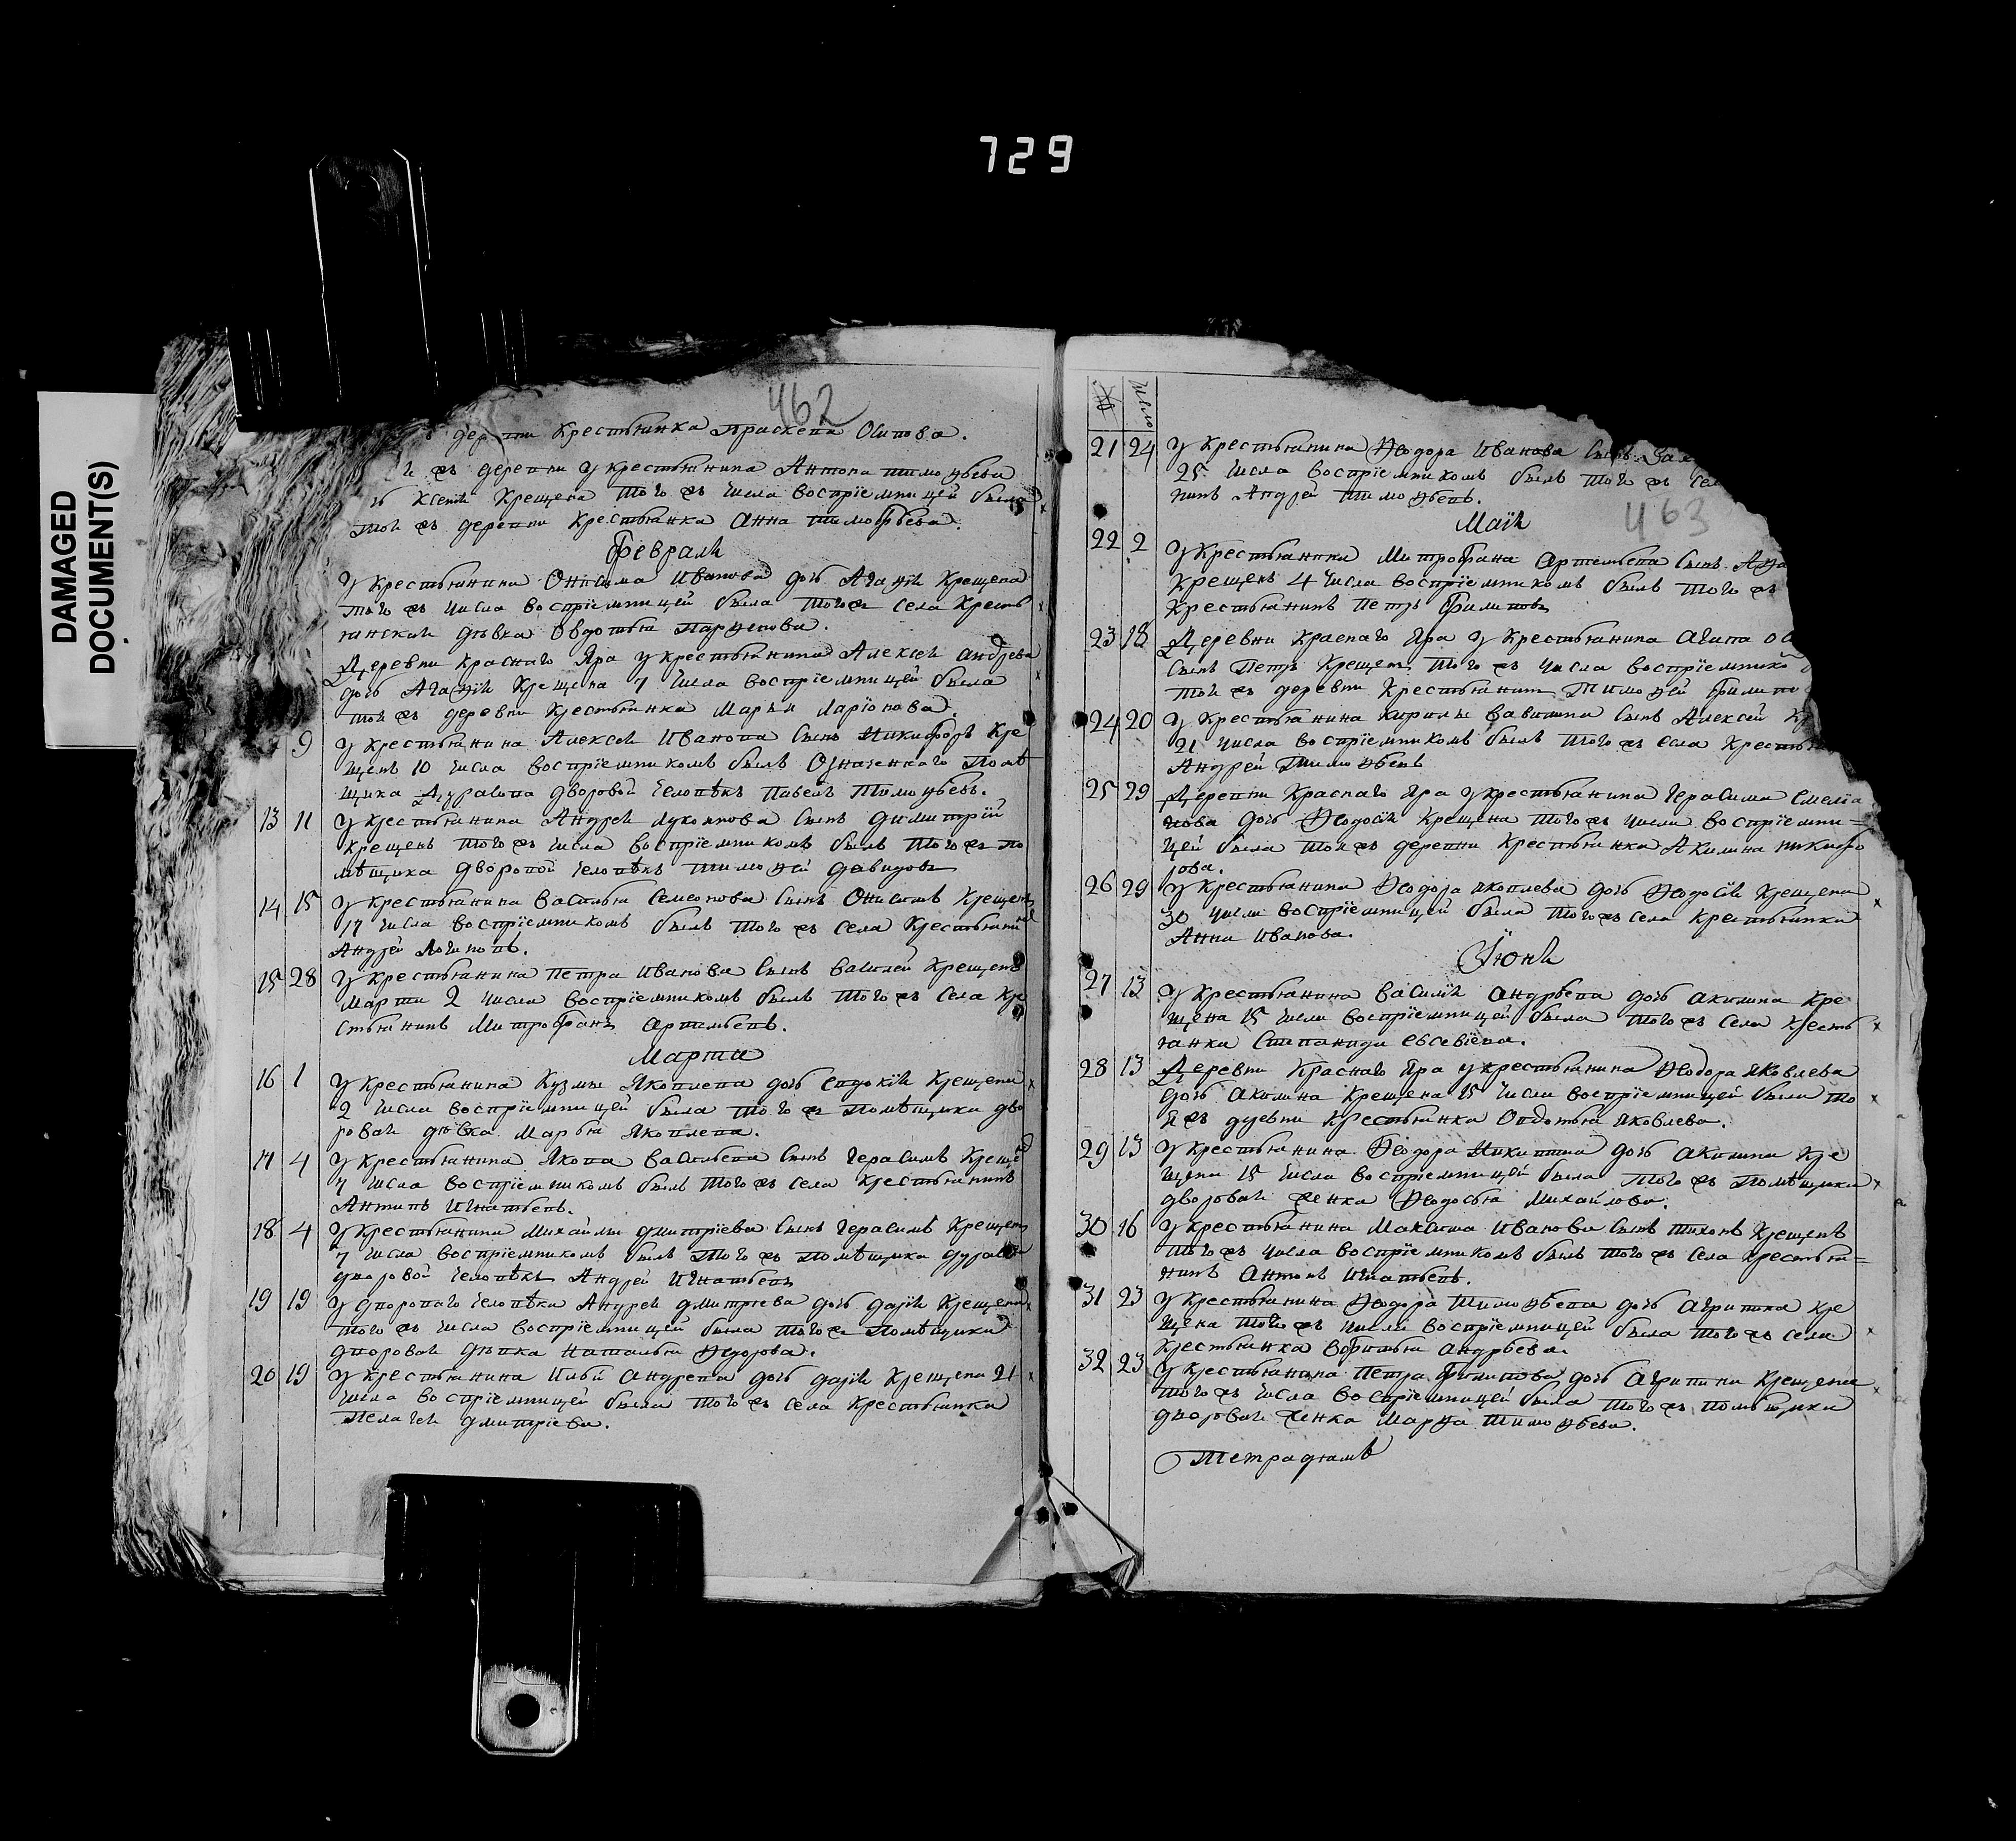 729
DAMAGED
DOCUMENT(S)
462
дерепни Крестьянка праскепа Осипова.
ж дерепни у крестьянина Антопа тимоѳѣева
Ксенія Крещена того ж числа воспріемницей была
той ж дерепни Крестьянка Анна Тимофѣева.
Февраля
У Крестьянина Онисима Иванова дочь Агаѳія Крещена
того ж числа воспріемницей была того ж села Кресть
янская дѣвка Овдотья Парѳенова.
Деревни Краснаго Яра у крестьянина Алексея андрева
дочь Агаѳія Крещена 7 числа воспріемницей была
той ж деревни Крестьянка Марья Ларіонова.
9 У крестьянина Алексея Иванопа сынъ Никифоръ Кре
щенъ 10 числа воспріемникомъ былъ Означенного помѣ
щика Дурасопа дворовой человѣкъ Павелъ Тимоѳѣевъ.
13 11 У крестьянина Андрея лукоянова сынъ Димитрій
Крещенъ того ж числа воспріемникомъ былъ того ж по
мѣщика дворопой челопѣкъ тимоѳей давидовъ
14 15 У крестьянина василья Семеонова сынъ Онисимъ Крещенъ
17 числа воспріемникомъ былъ того ж села Крестьянин
Андрей Логинопъ.
15 28 У Крестьянина петра иванова сынъ василей Крещенъ
Марта 2 числа воспріемникомъ былъ того ж села Кре
стьянинъ Митрофанъ артемьепъ.
Марта
16 1 У Крестьянина Кузмы Якоплепа дочь епдокія Крещена
2 числа воспріемницей была того ж помѣщика дво
ровая дѣвка Марья Якоплепа.
17 4 У Крестьянина Якопа васильепа сынъ Герасимъ Креще
7 числа воспріемникомъ былъ того ж села Крестьянинъ
Антипъ Игнатьепъ.
18 4 У Крестьянина Михайлы дмитріева сынъ Герасимъ Крещенъ
7 числа воспріемникомъ былъ того ж помѣщика дурасопа
дворовой челопѣкъ Андрей Игнатьепъ
19 19 У дпоропаго челопѣка Андрея дмитрева дочь дарія Крещена
того ж числа воспріемницей была того ж помѣщика
дпоровая дѣпка наталья ѳедорова.
20 19 У крестьянина Ильи андрепа дочь дарія Крещена 21
числа воспріемницей была того ж села Крестьянка
Пелагея дмитріева.
№ Число
463
21 24 У Крестьянина Ѳеодора Иванова сынъ
25 числа воспріемникомъ былъ того ж
нинъ Андрей Тимоѳѣепъ.
Маія
22 2 У Крестьянина Митрофана Артемьепа сынъ
Крещенъ 4 числа воспріемникомъ былъ того ж
Крестьянинъ Петръ Филиповъ
23 18 Деревни Краснаго Яра у Крестьянина Агапа
сынъ Петръ Крещенъ того ж числа воспріемнико
той ж деревни Крестьянинъ Тимоѳей
24 20 У Крестьянина кирилы вавилипа сынъ Алексей
21 числа воспріемникомъ былъ того ж села Крестья
Андрей Тимоѳѣепъ
25 29 Дерепни Краснаго Яра у крестьянина Герасима
нова дочь Ѳеодосія Крещена того ж числа воспріемни=
цей была той ж дерепни Крестьянка Акилина никифо
рова.
26 29 У Крестьянина Ѳеодора якоплева дочь Ѳеодосія Крещена
30 числа воспріемницей была того ж села Крестьянка
Анна Иванова.
Іюня
27 13 У Крестьянина василія андрѣепа дочь акилина Кре
щена 15 числа воспріемницей была того ж села Кресть
янка Степанида евсевіепа.
28 13 Деревни Краснаго Яра у крестьянина Ѳеодора Яковлева
дочь акилина Крещена 15 числа воспріемницей была то
й ж деревни Крестьянка Опдотья Яковлева.
29 13 У Крестьянина Ѳеодора Никитина дочь акилина Кре
щена 15 числа воспріемницей была того ж помѣщика
дворовая женка Ѳеодосья Михайлова.
30 16 У крестьянина Максима иванова сынъ Тихонъ Крещенъ
того ж числа воспріемникомъ былъ того ж села Крестья=
нинъ Антонъ Игнатьепъ.
31 23 У крестьянина Ѳеодора Тимоѳѣепа дочь агрипина Кре
щена того ж числа воспріемницей была того ж села
Крестьянка андрѣева.
32 23 У Крестьянина Петра Филипова дочь агрипина Крещена
того ж числа воспріемницей была того ж помѣщика
дворовая женка марѳа тимоѳѣева.
Тетрадямъ